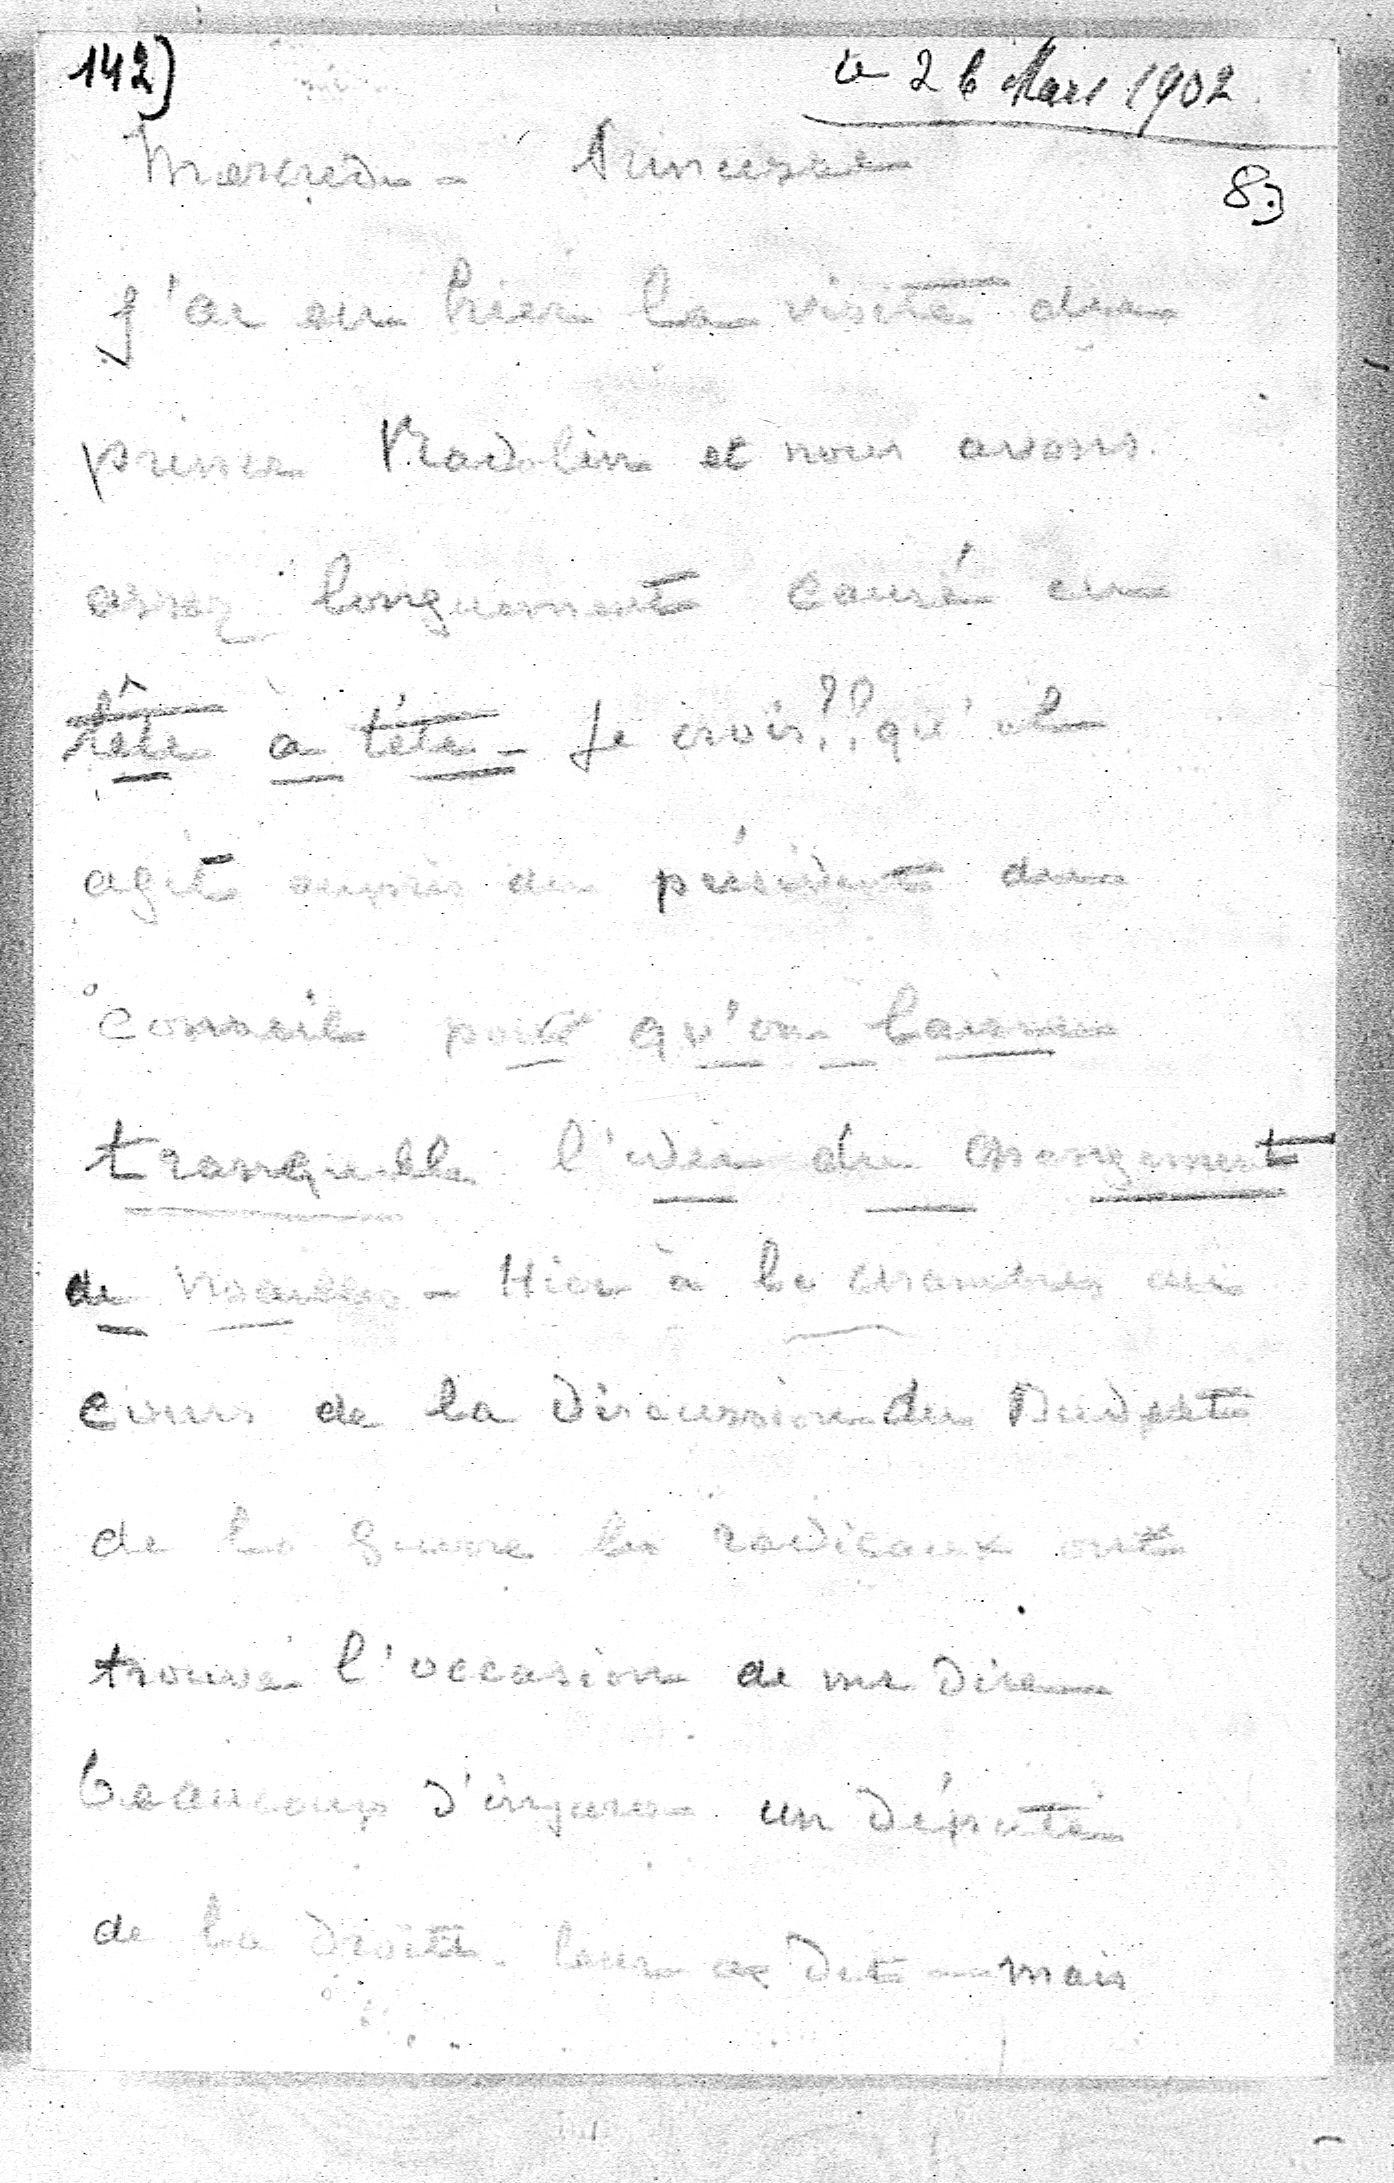 142)
le 26 Mars 1902
83
Mercredi - Princesse
j'ai eu hier la visite du
prince Radolin et nous avons
assez longuement causé en
tête à tête - Je crois?? qu'il
agit auprès du président du
conseil pour qu'on laisse
tranquille l'idée du changement
de Noailles - Hier à la chambre au
cours de la discussion du Budget
de la guerre les radicaux ont
trouvé l'occasion de me dire
beaucoup d'injures un député
de la droite leur a dit - mais